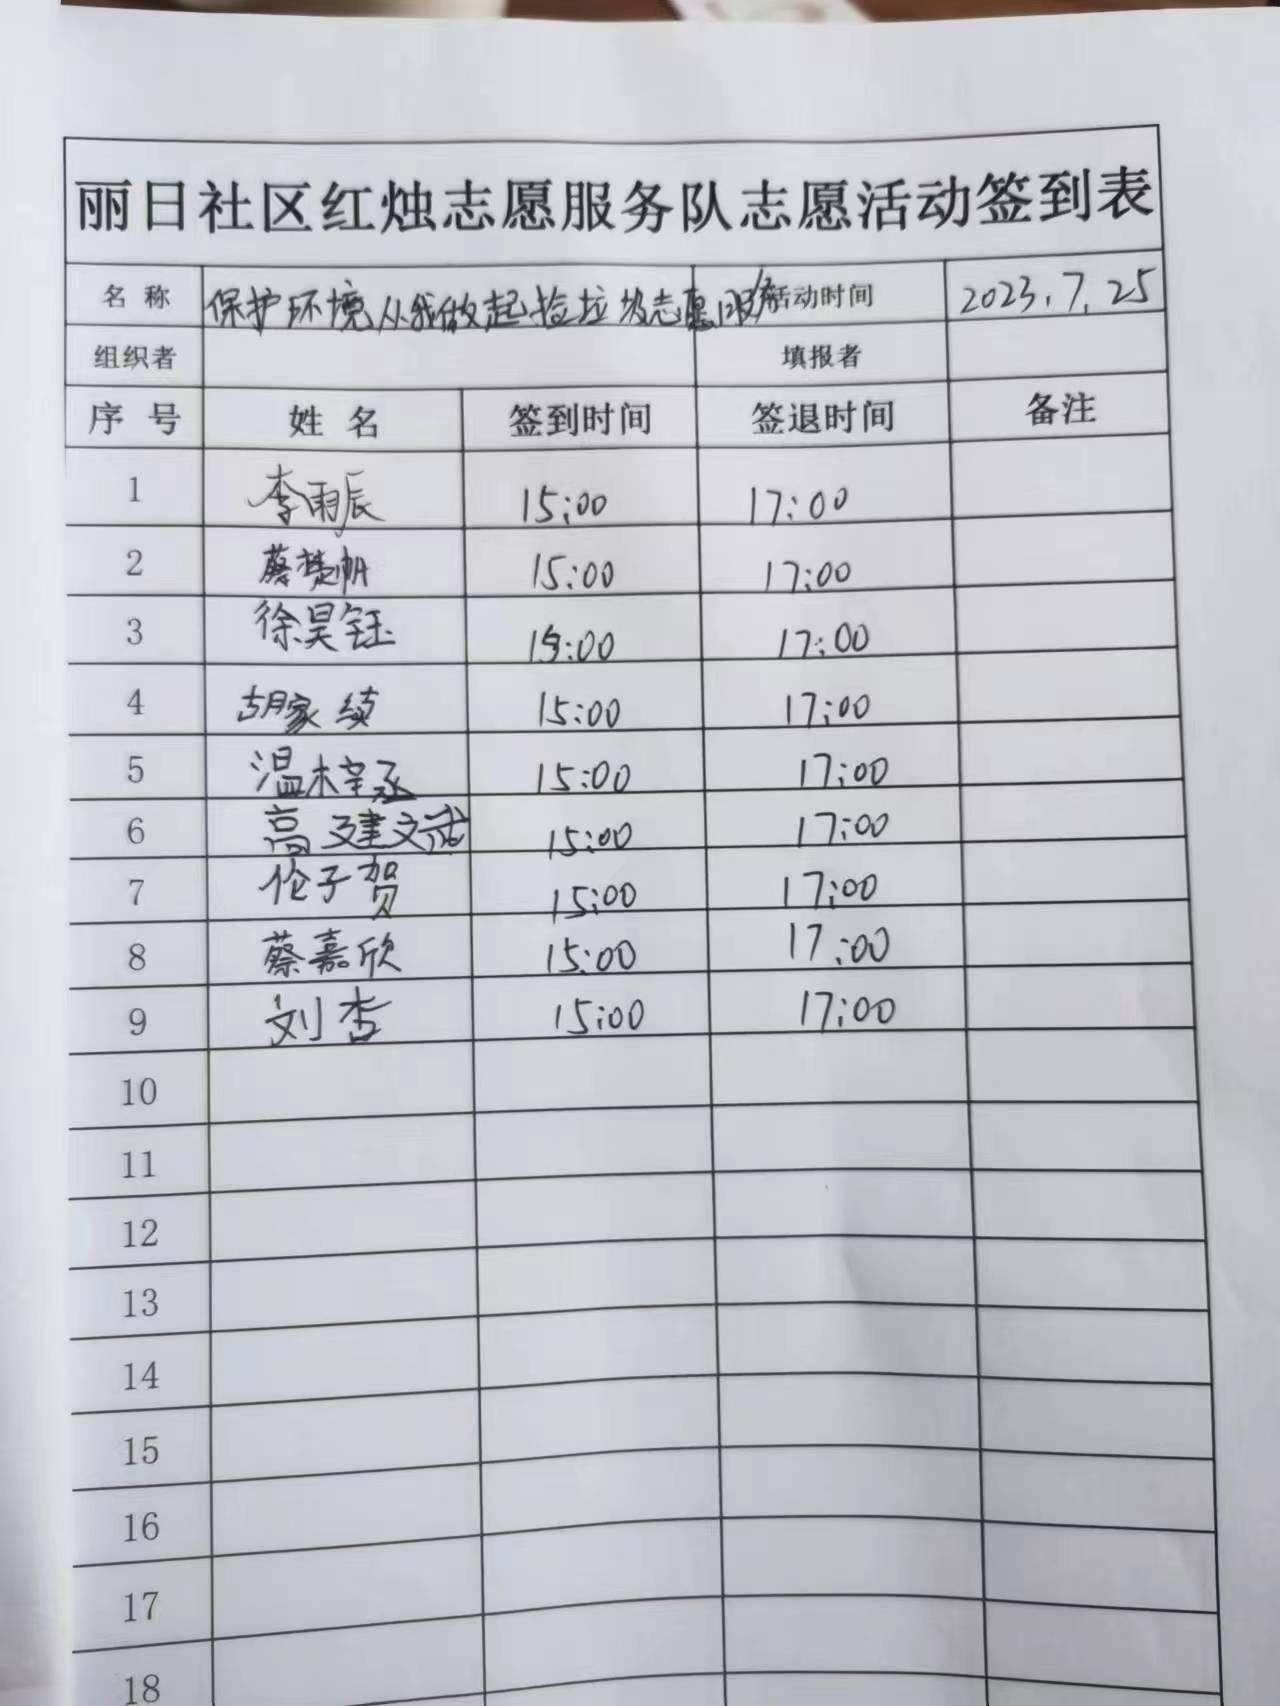 丽日社区红烛志愿服务队志愿活动签到表
名 称 保护环境从我做起捡垃圾志愿服务 活动时间 2023.7.25
组织者 填报者
序 号 姓 名 签到时间 签退时间 备注
1 李雨辰 15:00 17:00
2 蔡楚帆 15:00 17:00
3 徐昊钰 15:00 17:00
4 胡家续 15:00 17:00
5 温梓丞 15:00 17:00
6 高建文 15:00 17:00
7 伦子贺 15:00 17:00
8 蔡嘉欣 15:00 17:00
9 刘杏 15:00 17:00
10
11
12
13
14
15
16
17
18